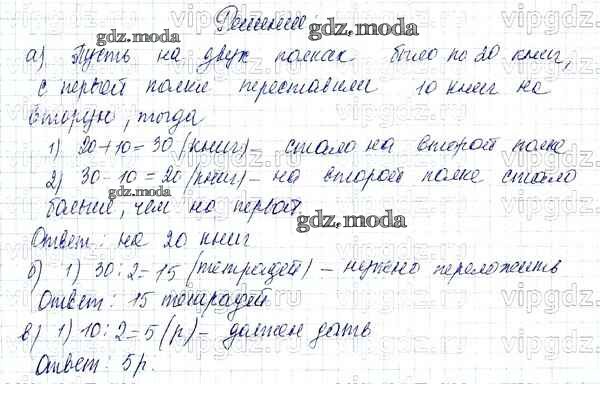 Решение
gdz.moda gdz.moda
а) Пусть на двух полках было по 20 книг,
с первой полки переставили 10 книг на
вторую, тогда
1) 20+10=30 (книг) - стало на второй полке
2) 30-10=20 (книг) - на второй полке стало
gdz.moda
больше, чем на первой
gdz.moda
Ответ: на 20 книг
б) 1) 30:2=15 (тетрадей) - нужно переложить
Ответ: 15 тетрадей
в) 1) 10:2=5 (р) - должен дать
Ответ: 5р.
vipgdz.ru